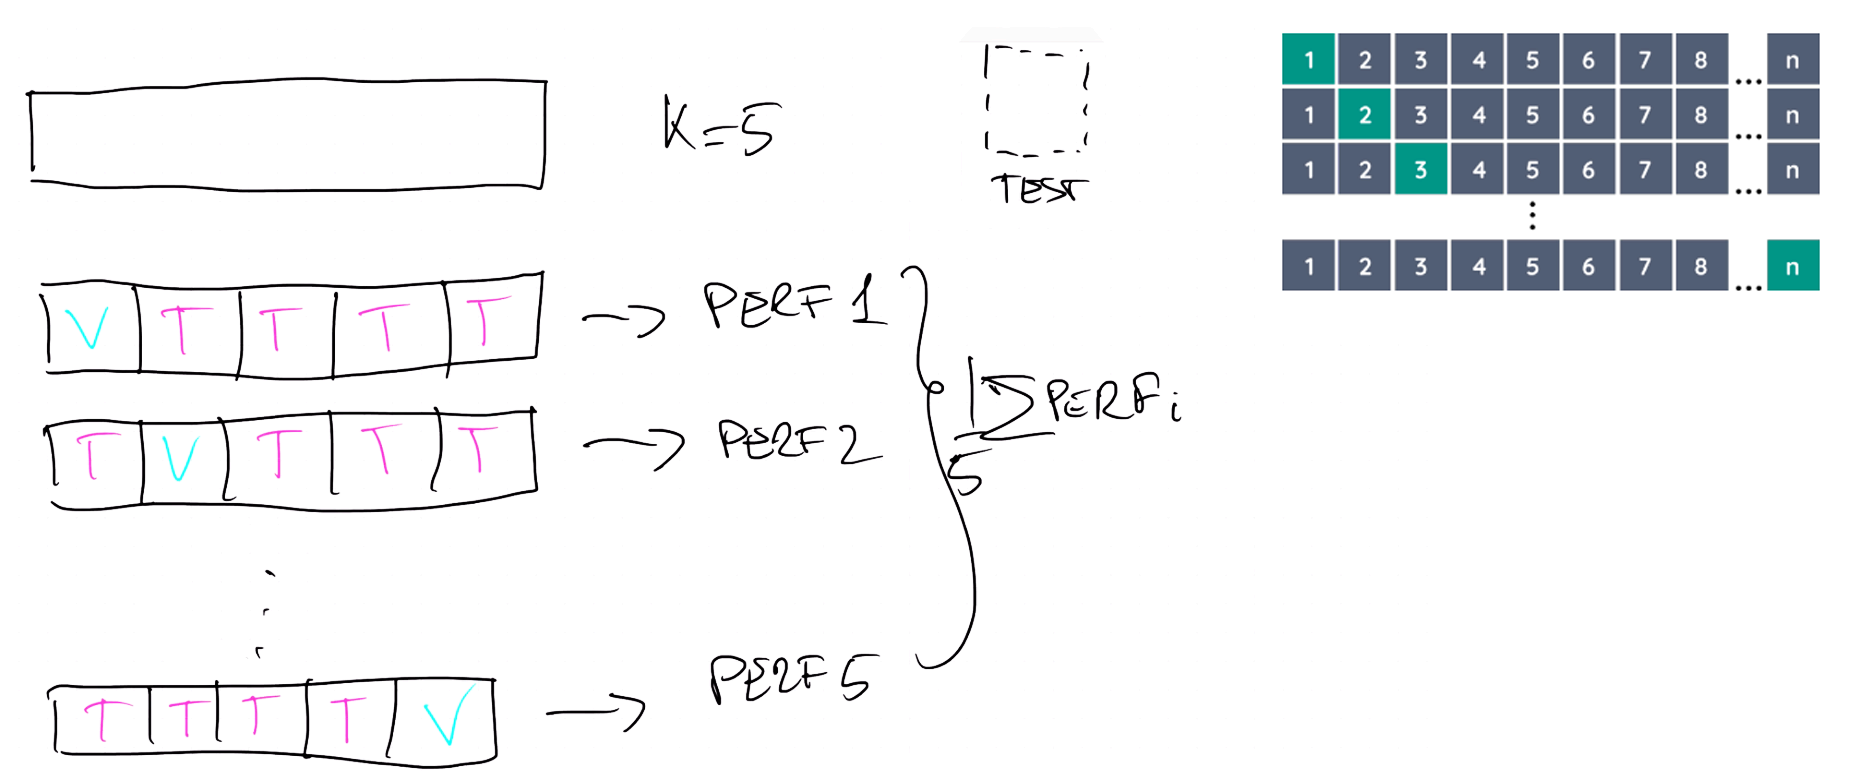 K=5
TEST
V T T T T → PERF 1
T V T T T → PERF 2
⋮
T T T T V → PERF 5
1 Σ PERF i
5
1 2 3 4 5 6 7 8 ... n
1 2 3 4 5 6 7 8 ... n
1 2 3 4 5 6 7 8 ... n
⋮
1 2 3 4 5 6 7 8 ... n